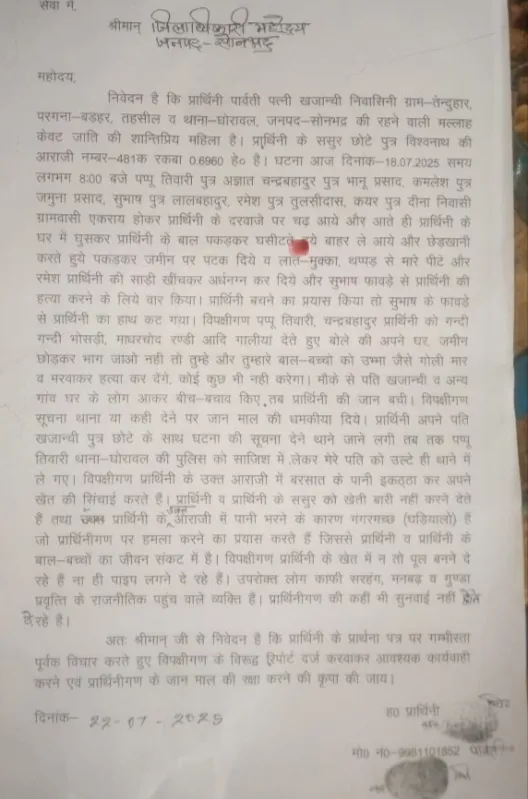 सेवा में,
श्रीमान् जिलाधिकारी महोदय
जनपद - सोनभद्र
महोदय,
निवेदन है कि प्रार्थिनी पार्वती पत्नी खजान्ची निवासिनी ग्राम–तेन्दुहार,
परगना–बड़हर, तहसील व थाना–घोरावल, जनपद–सोनभद्र की रहने वाली मल्लाह
केवट जाति की शान्तिप्रिय महिला है। प्रार्थिनी के ससुर छोटे पुत्र विश्वनाथ की
आराजी नम्बर–481क रकबा 0.6960 हे० है। घटना आज दिनांक–18.07.2025 समय
लगभग 8:00 बजे पप्पू तिवारी पुत्र अज्ञात चन्द्रबहादुर पुत्र भानू प्रसाद, कमलेश पुत्र
जमुना प्रसाद, सुभाष पुत्र लालबहादुर, रमेश पुत्र तुलसीदास, कयर पुत्र दीना निवासी
ग्रामवासी एकराय होकर प्रार्थिनी के दरवाजे पर चढ़ आये और आते ही प्रार्थिनी के
घर में घुसकर प्रार्थिनी के बाल पकड़कर घसीटते हुये बाहर ले आये और छेड़खानी
करते हुये पकड़कर जमीन पर पटक दिये व लात–मुक्का, थप्पड़ से मारे पीटे और
रमेश प्रार्थिनी की साड़ी खींचकर अर्धनग्न कर दिये और सुभाष फावड़े से प्रार्थिनी की
हत्या करने के लिये वार किया। प्रार्थिनी बचने का प्रयास किया तो सुभाष के फावड़े
से प्रार्थिनी का हाथ कट गया। विपक्षीगण पप्पू तिवारी, चन्द्रबहादुर प्रार्थिनी को गन्दी
गन्दी भोसड़ी, माधरचोद रण्डी आदि गालीयां देते हुए बोले की अपने घर, जमीन
छोड़कर भाग जाओ नही तो तुम्हे और तुम्हारे बाल–बच्चो को उम्भा जैसे गोली मार
व मरवाकर हत्या कर देंगे, कोई कुछ भी नही करेगा। मौके से पति खजान्ची व अन्य
गांव घर के लोग आकर बीच–बचाव किए तब प्रार्थिनी की जान बची। विपक्षीगण
सूचना थाना या कही देने पर जान माल की धमकीया दिये। प्रार्थिनी अपने पति
खजान्ची पुत्र छोटे के साथ घटना की सूचना देने थाने जाने लगी तब तक पप्पू
तिवारी थाना–घोरावल की पुलिस को साजिश में लेकर मेरे पति को उल्टे ही थाने में
ले गए। विपक्षीगण प्रार्थिनी के उक्त आराजी में बरसात के पानी इकठ्ठा कर अपने
खेत की सिंचाई करते है। प्रार्थिनी व प्रार्थिनी के ससुर को खेती बारी नहीं करने देते
है तथा प्रार्थिनी के उक्त आराजी में पानी भरने के कारण मंगरमच्छ (घड़ियालो) है
जो प्रार्थीनीगण पर हमला करने का प्रयास करते हैं जिससे प्रार्थिनी व प्रार्थिनी के
बाल–बच्चों का जीवन संकट में है। विपक्षीगण प्रार्थिनी के खेत में न तो पूल बनने दे
रहे हैं ना ही पाइप लगने दे रहे हैं। उपरोक्त लोग काफी सरहंग, मनबढ़ व गुण्डा
प्रवृत्ति के राजनीतिक पहुंच वाले व्यक्ति है। प्रार्थिनीगण की कहीं भी सुनवाई नहीं होने
दे रहे है।
अतः श्रीमान् जी से निवेदन है कि प्रार्थिनी के प्रार्थना पत्र पर गम्भीरता
पूर्वक विचार करते हुए विपक्षीगण के विरुद्ध रिपोर्ट दर्ज करवाकर आवश्यक कार्यवाही
करने एवं प्रार्थिनीगण के जान माल की रक्षा करने की कृपा की जाय।
दिनांक– 22-07-2025
ह० प्रार्थिनी
मो० नं०–9981101852